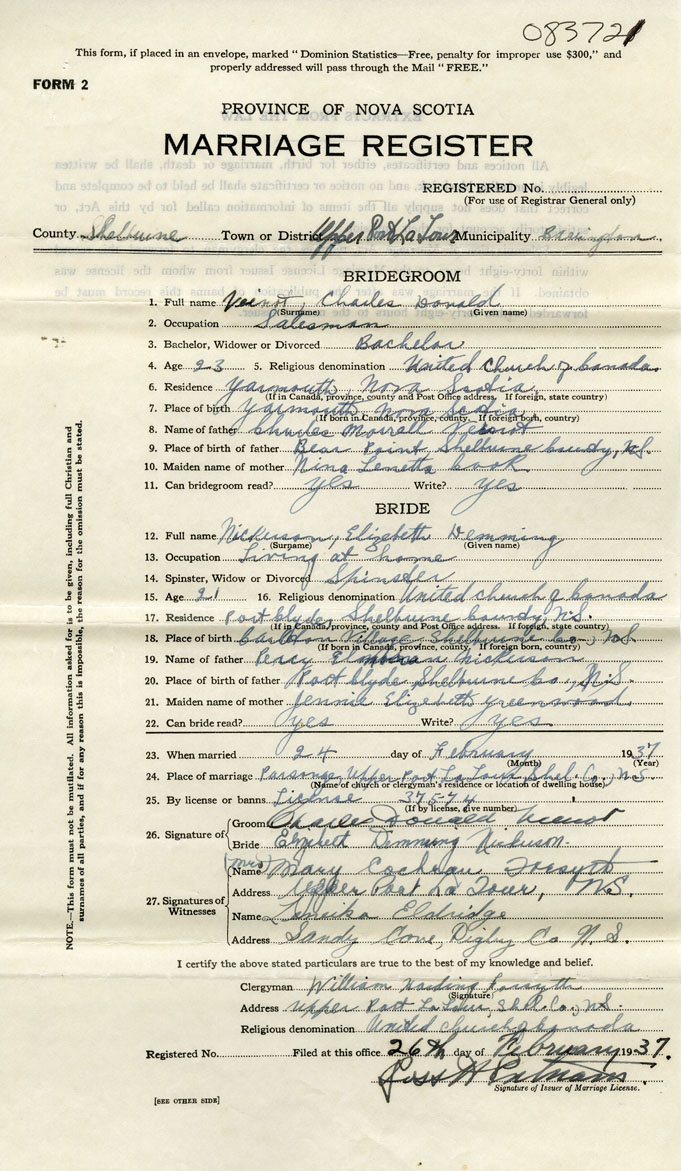 083721
This form, if placed in an envelope, marked " Dominion Statistics—Free, penalty for improper use $300," and
properly addressed will pass through the Mail " FREE."
FORM 2
PROVINCE OF NOVA SCOTIA
MARRIAGE REGISTER
REGISTERED No.
(For use of Registrar General only)
County Shelburne Town or District Upper Port La Tour Municipality Barrington
BRIDEGROOM
1. Full name Veinot, Charles Donald
(Surname) (Given name)
2. Occupation Salesman
3. Bachelor, Widower or Divorced Bachelor
4. Age 23 5. Religious denomination United Church of Canada
6. Residence Yarmouth, Nova Scotia
(If in Canada, province, county and Post Office address. If foreign, state country)
7. Place of birth Yarmouth, Nova Scotia
(If born in Canada, province, county. If foreign born, country)
8. Name of father Charles Morrell Veinot
9. Place of birth of father Bear Point, Shelburne County, N.S.
10. Maiden name of mother Nina Lenetta Cook
11. Can bridegroom read? yes Write? yes
BRIDE
12. Full name Nickerson, Elizabeth Demming
(Surname) (Given name)
13. Occupation Living at home
14. Spinster, Widow or Divorced Spinster
15. Age 21 16. Religious denomination United Church of Canada
17. Residence Port Clyde, Shelburne County, N.S.
(If in Canada, province, county and Post Office address. If foreign, state country)
18. Place of birth Carleton Village, Shelburne Co., N.S.
(If born in Canada, province, county. If foreign born, country)
19. Name of father Percy Nickerson
20. Place of birth of father Port Clyde, Shelburne Co., N.S.
21. Maiden name of mother Jennie Elizabeth Greenwood
22. Can bride read? yes Write? yes
23. When married 24 day of February 1937
(Month) (Year)
24. Place of marriage Parsonage, Upper Port La Tour, Shel. Co., N.S.
(Name of church or clergyman's residence or location of dwelling house)
25. By license or banns License 37574
(If by license, give number)
26. Signature of
Groom Charles Donald Veinot
Bride Elizabeth Demming Nickerson
27. Signatures of Witnesses
(Mrs) Name Mary Cochran Forsyth
Address Upper Port La Tour, N.S.
Name Eldridge
Address Sandy Cove, Digby Co. N.S.
I certify the above stated particulars are true to the best of my knowledge and belief.
Clergyman William Harding Forsyth
(Signature)
Address Upper Port La Tour, Shel. Co., N.S.
Religious denomination United Church of Canada
Registered No. Filed at this office 26th day of February 1937.
Ross H Putnam
Signature of Issuer of Marriage License.
[SEE OTHER SIDE]
NOTE.—This form must not be mutilated. All information asked for is to be given, including full Christian and
surnames of all parties, and if for any reason this is impossible, the reason for the omission must be stated.